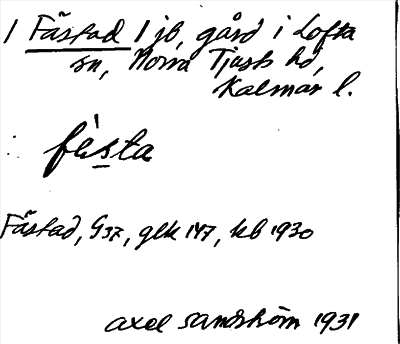 1 Fästad 1 jb, gård i Lofta
sn, Norra Tjusts hd,
Kalmar l.
fèsta
Fästad, G37, glk 147, kb 1930
Axel Sandström 1931